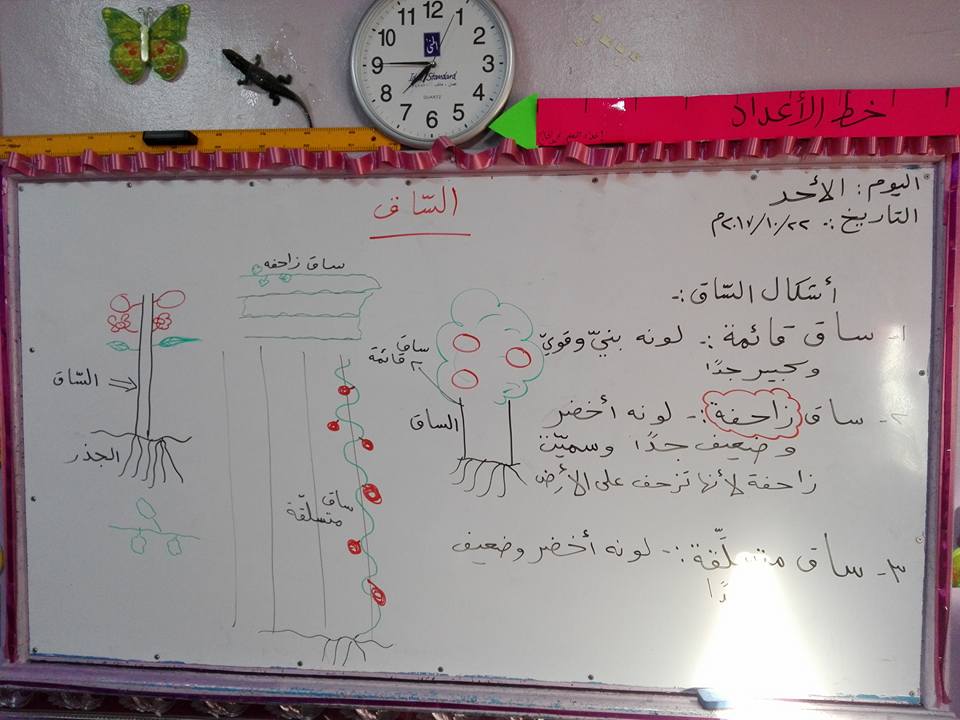 12
1
2
3
4
5
6
7
8
9
10
11
Standard
QUARTZ
خط الأعداد
اليوم : الأحد
التاريخ :. ٢٠١٧/١٠/٢٢م
السّاق
أشكال السّاق :-
١- ساق قائمة :. لونه بنيّ وقويّ
وكبير جدًا
٢- ساق زاحفة :- لونه أخضر
وضعيف جدًا وسميّت
زاحفة لأنها تزحف على الأرض
٣- ساق متسلّقة :- لونه أخضر وضعيف
ساق زاحفه
ساق
قائمة
الساق
ساق
متسلّقة
السّاق
الجذر